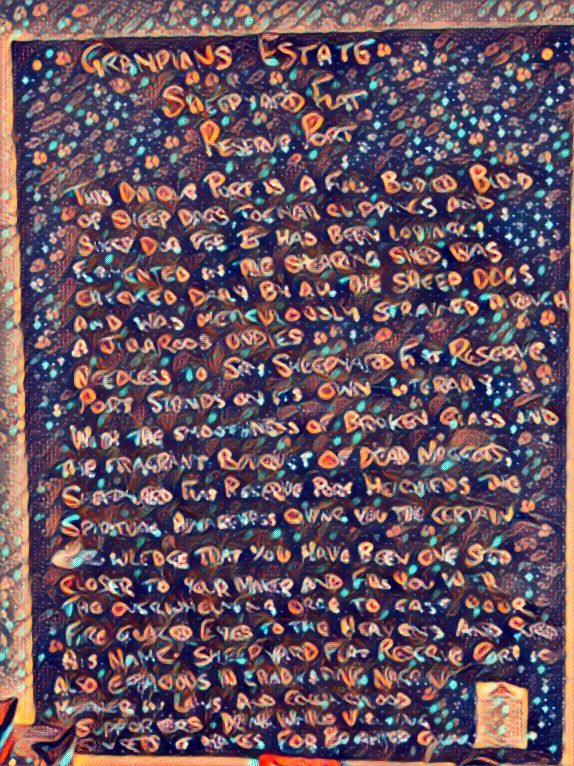 GRAMPIANS ESTATE
SHEEPYARD FLAT
RESERVE PORT
THIS UNIQUE PORT IS A FULL BODIED BLEND
OF SHEEP DAGS TOENAIL CLIPPINGS AND
SHEEP DUG IT HAS BEEN LOVINGLY
FERMENTED IN THE SHEARING SHED, WAS
CHECKED DAILY BY ALL THE SHEEP DOGS
AND WAS METICULOUSLY STRAINED THROUGH
A JILLAROOS UNDIES
NEEDLESS TO SAY SHEEPYARD FLAT RESERVE
PORT STANDS ON ITS OWN LITERALLY
WITH THE SMOOTHNESS OF BROKEN GLASS AND
THE FRAGRANT BOUQUET OF DEAD MAGGOTS
SHEEPYARD FLAT RESERVE PORT HEIGHTENS THE
SPIRITUAL AWARENESS GIVING YOU THE CERTAIN
KNOWLEDGE THAT YOU HAVE BEEN ONE STEP
CLOSER TO YOUR MAKER AND FILLS YOU WITH
THE OVERWHELMING URGE TO CAST YOUR
FIRE GLAZED EYES TO THE HEAVENS AND
HIS NAME. SHEEPYARD FLAT RESERVE PORT IS
ALSO EFFICACIOUS IN ERADICATING
IN LAWS AND COLLINGWOOD
SUPPORTERS DRINK WHILE VIEWING
FOR